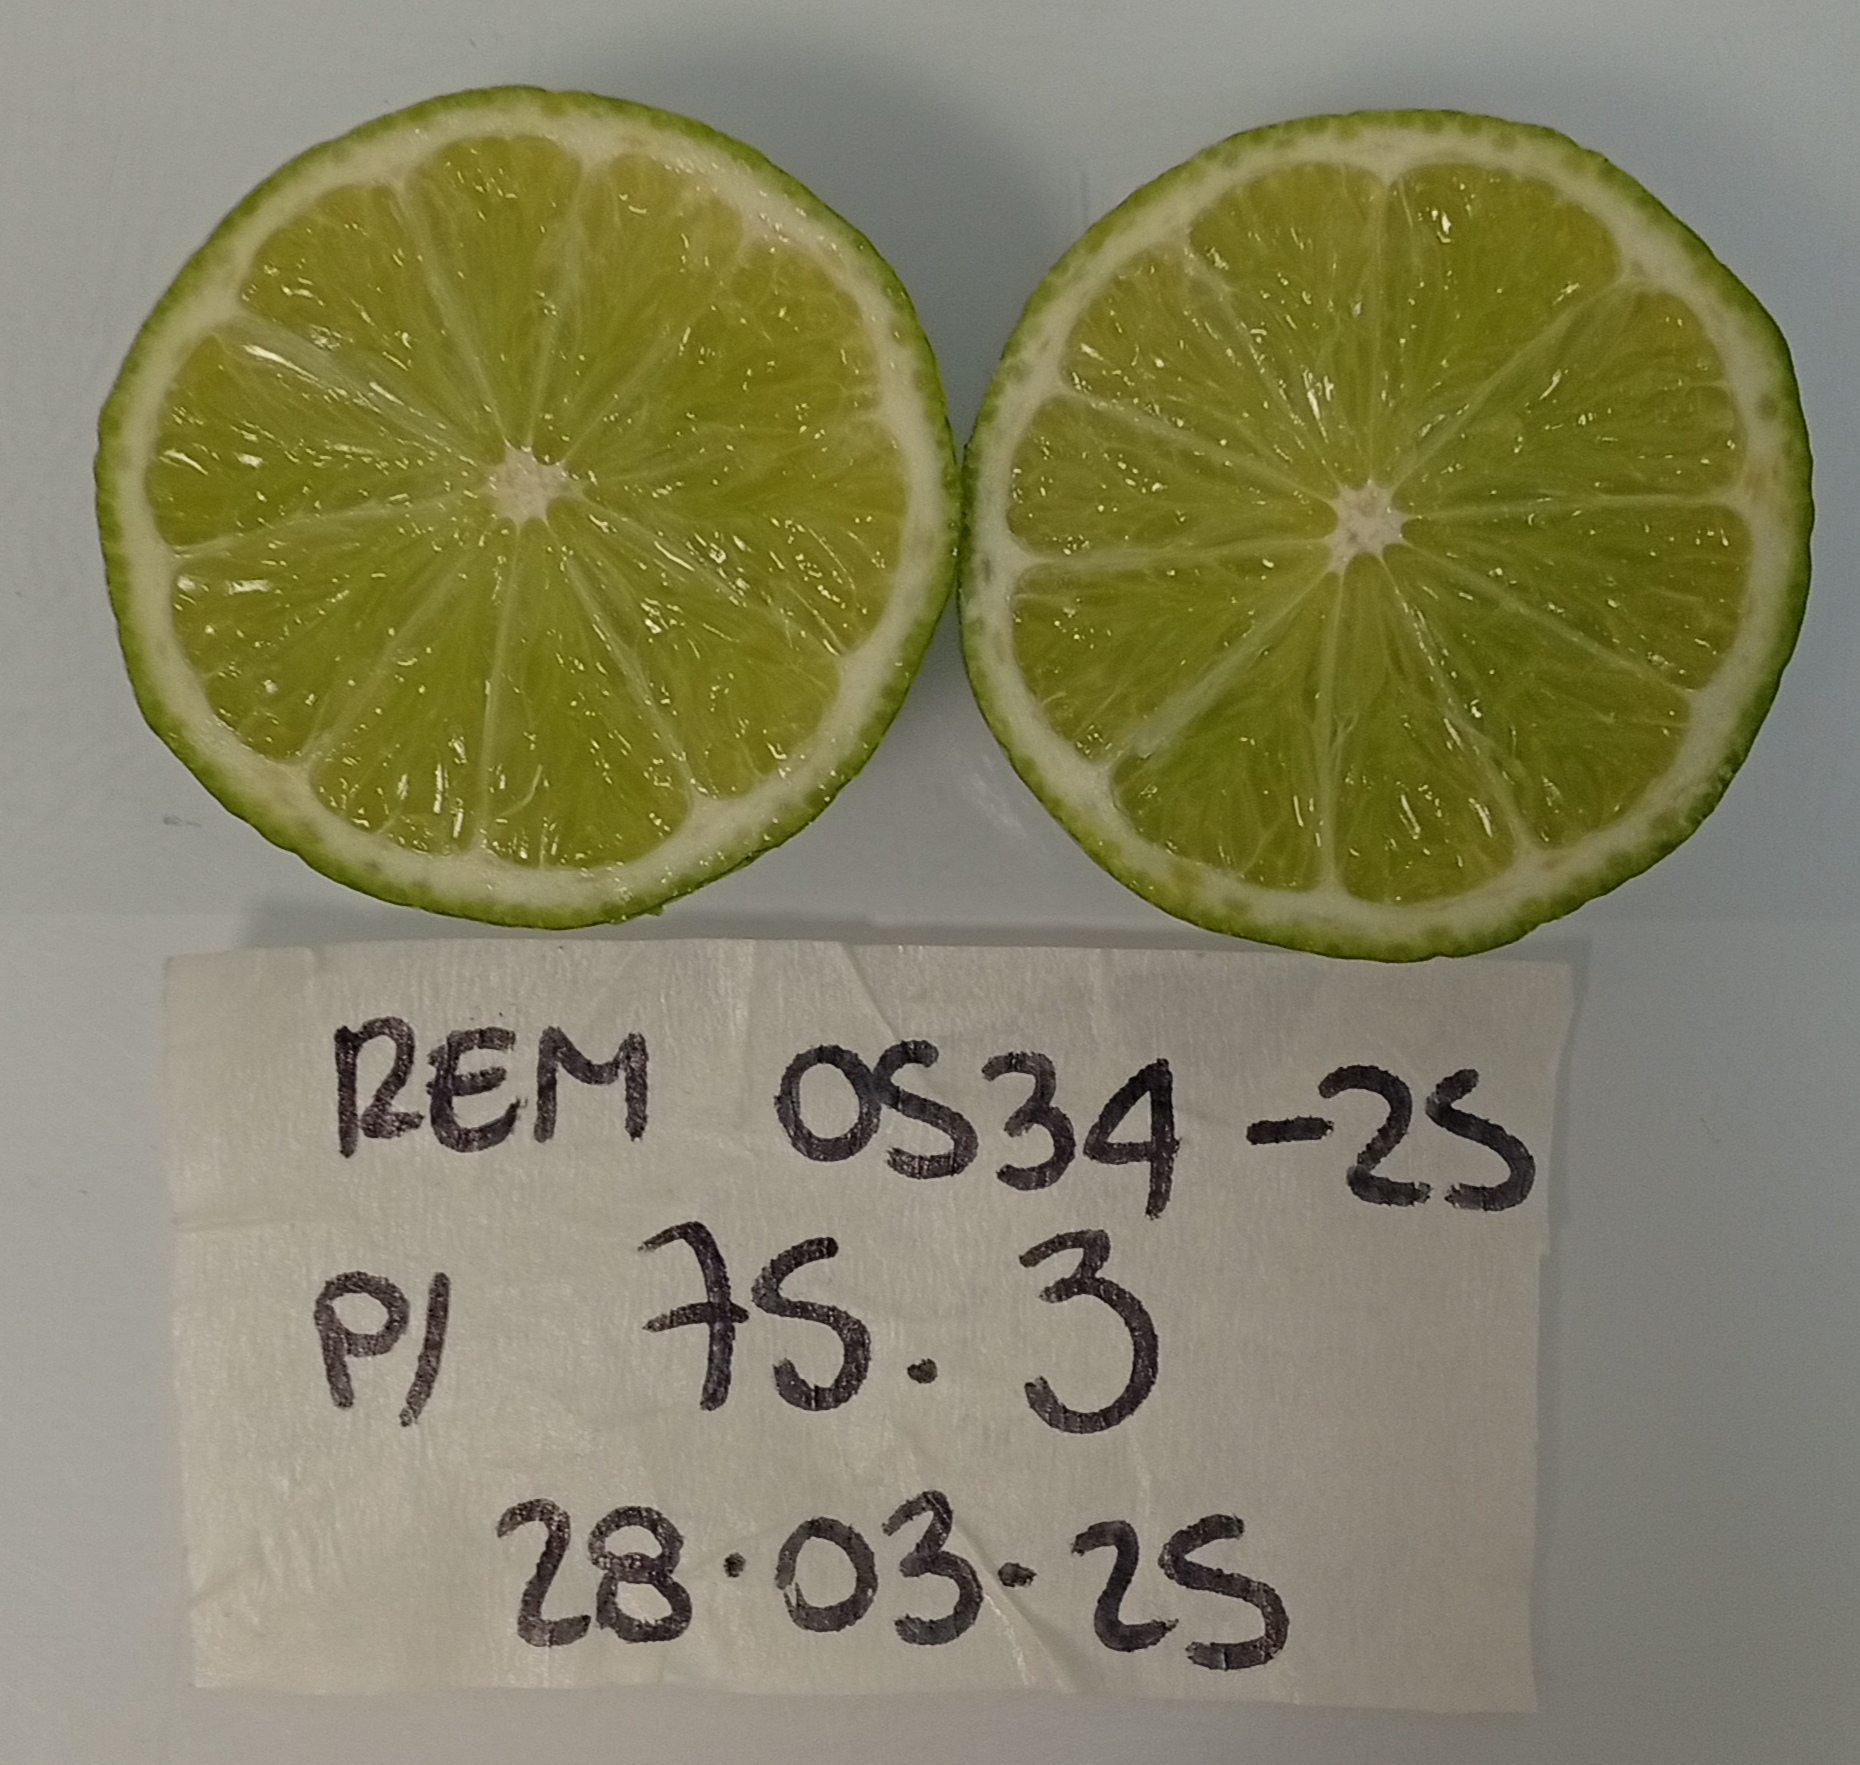 REM 0534-25
P/ 75.3
28.03-25